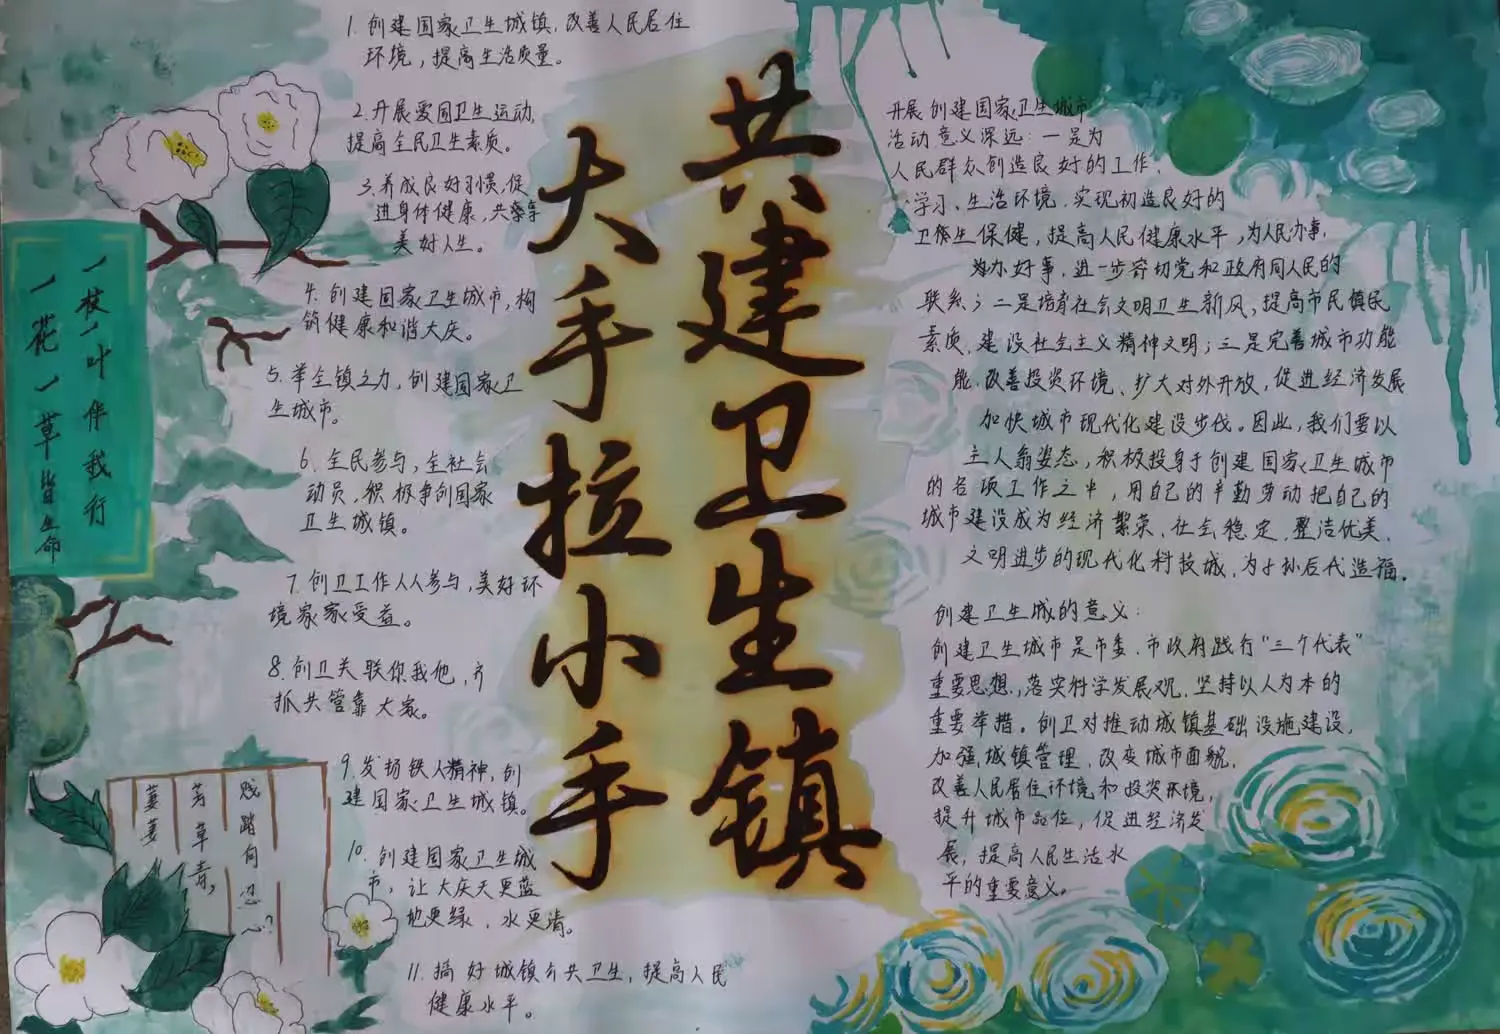 大手拉小手
共建卫生镇
一枝一叶伴我行
一花一草皆生命
1. 创建国家卫生城镇，改善人民居住
环境，提高生活质量。
2. 开展爱国卫生运动，
提高全民卫生素质。
3. 养成良好习惯，促
进身体健康，共享
美好人生。
4. 创建国家卫生城市，构
筑健康和谐大庆。
5. 举全镇之力，创建国家卫
生城市。
6. 全民参与，全社会
动员，积极争创国家
卫生城镇。
7. 创卫工作人人参与，美好环
境家家受益。
8. 创卫关联你我他，齐
抓共管靠大家。
9. 发扬铁人精神，创
建国家卫生城镇。
10. 创建国家卫生城
市，让大庆天更蓝
地更绿、水更清。
11. 搞好城镇公共卫生，提高人民
健康水平。
萋萋
芳草青，
贱踏何忍心？
开展创建国家卫生城市
活动意义深远：一是为
人民群众创造良好的工作、
学习、生活环境，实现初造良好的
卫生保健，提高人民健康水平，为人民办事，
为办好事，进一步密切党和政府同人民的
联系；二是培育社会文明卫生新风，提高市民镇民
素质，建设社会主义精神文明；三是完善城市功能
能，改善投资环境、扩大对外开放，促进经济发展
加快城市现代化建设步伐。因此，我们要以
主人翁姿态，积极投身于创建国家卫生城市
的各项工作之中，用自己的辛勤劳动把自己的
城市建设成为经济繁荣、社会稳定、整洁优美、
文明进步的现代化科技城，为子孙后代造福。
创建卫生城的意义：
创建卫生城市是市委、市政府践行“三个代表”
重要思想，落实科学发展观，坚持以人为本的
重要举措。创卫对推动城镇基础设施建设，
加强城镇管理，改变城市面貌，
改善人民居住环境和投资环境，
提升城市品位，促进经济发
展，提高人民生活水
平的重要意义。